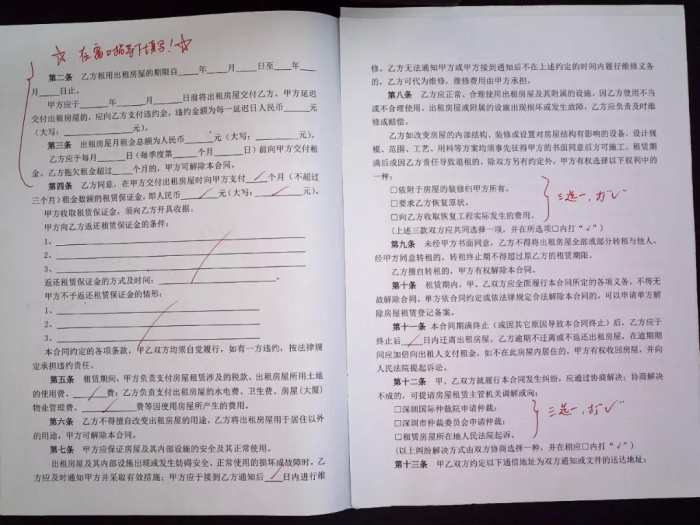 ☆ 在窗口指导下填写！☆
第二条 乙方租用出租房屋的期限自____年____月____日至____年____
月____日止。
甲方应于____年____月____日前将出租房屋交付乙方。甲方迟延
交付出租房屋的，应向乙方支付违约金，违约金额为每一延迟日人民币____元
（大写：____元）。
第三条 出租房屋月租金总额为人民币____元（大写：____元）。
乙方应于每月____日（每季度第____个月____日）前向甲方交付租
金。乙方拖欠租金超过____个月的，甲方可解除本合同。
第四条 乙方同意，在甲方交付出租房屋时向甲方支付____个月（不超过
三个月）租金数额的租赁保证金，即人民币____元（大写：____元）。
甲方收取租赁保证金，须向乙方开具收据。
甲方向乙方返还租赁保证金的条件：
1、
2、
3、
返还租赁保证金的方式及时间：
甲方不予返还租赁保证金的情形：
1、
2、
3、
本合同约定的各项条款，甲乙双方均须自觉履行，如有一方违约，按法律规
定承担违约责任。
第五条 租赁期间，甲方负责支付房屋租赁涉及的税款、出租房屋所用土地
的使用费、____费；乙方负责支付出租房屋的水电费、卫生费、房屋(大厦)
物业管理费、____费等因使用房屋所产生的费用。
第六条 乙方不得擅自改变出租房屋的用途。乙方将出租房屋用于居住以外
的用途，甲方可解除本合同。
第七条 甲方应保证房屋及其内部设施的安全及其正常使用。
出租房屋及其内部设施出现或发生妨碍安全、正常使用的损坏或故障时，乙
方应及时通知甲方并采取有效措施；甲方应于接到乙方通知后____日内进行维
修。乙方无法通知甲方或甲方接到通知后不在上述约定的时间内履行维修义务
的，乙方可代为维修，维修费用由甲方承担。
第八条 乙方应正常、合理使用出租房屋及其附属的设施。因乙方使用不当
或不合理使用，出租房屋或附属的设施出现损坏或发生故障，乙方应负责及时维
修或赔偿。
乙方如改变房屋的内部结构、装修或设置对房屋结构有影响的设备，设计规
模、范围、工艺、用料等方案均须事先征得甲方的书面同意后方可施工。租赁期
满后或因乙方责任导致退租的，除双方另有约定外，甲方有权选择以下权利中的
一种：
□依附于房屋的装修归甲方所有。
□要求乙方恢复原状。
□向乙方收取恢复工程实际发生的费用。
三选一，打"√"
（上述三款双方应共同选择一项，并在所选项□内打"√"）
第九条 未经甲方书面同意，乙方不得将出租房屋全部或部分转租与他人。
经甲方同意转租的，转租终止期不得超过原乙方的租赁期限。
乙方擅自转租的，甲方有权解除本合同。
第十条 租赁期内，甲、乙双方应全面履行本合同所定的各项义务，不得无
故解除合同。单方依合同约定或依法律规定合法解除本合同的，可以申请单方解
除房屋租赁登记备案。
第十一条 本合同期满终止（或因其它原因导致本合同终止）后，乙方应于
终止后____日内迁离出租房屋。乙方逾期不迁离或不返还出租房屋，在逾期期
间应加倍向出租人支付租金。如不在此房屋内居住的，甲方有权收回房屋，并向
人民法院提起诉讼。
第十二条 甲、乙双方就履行本合同发生纠纷，应通过协商解决；协商解决
不成的，可提请房屋租赁主管机关调解或向：
□深圳国际仲裁院申请仲裁；
□深圳市仲裁委员会申请仲裁；
□租赁房屋所在地人民法院起诉。
三选一，打"√"
（以上纠纷解决方式由双方协商选择一种，并在相应□内打"√"）
第十三条 甲乙双方约定以下通信地址为双方通知或文件的送达地址：